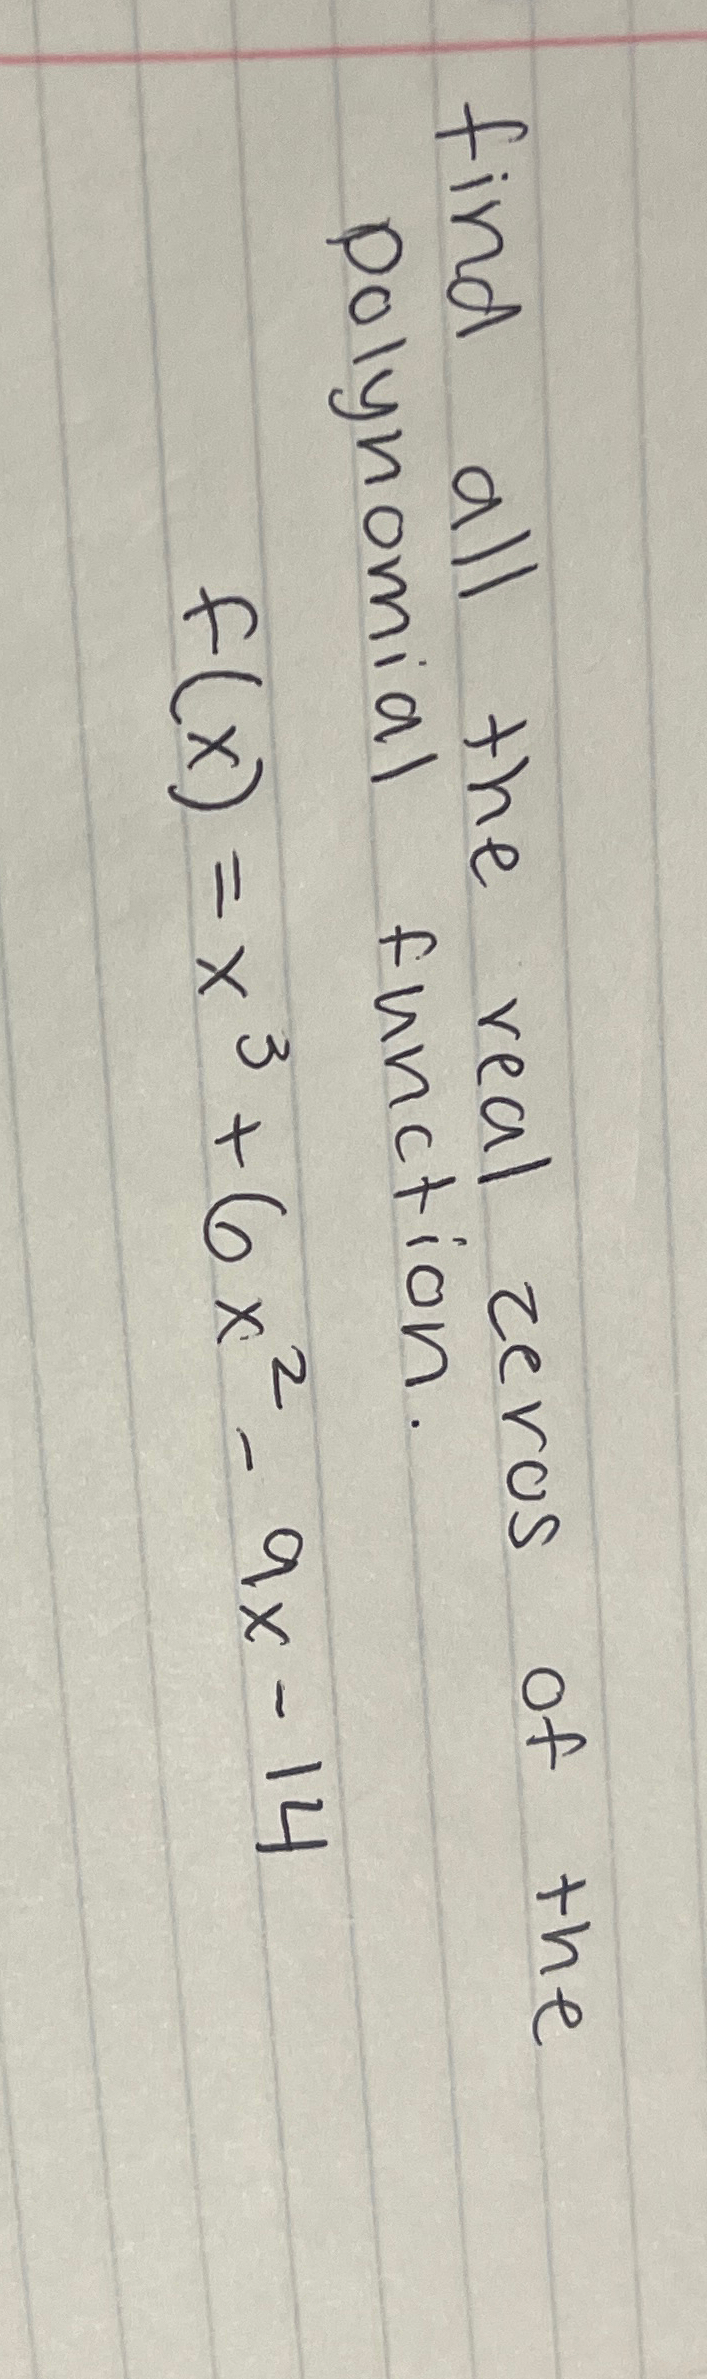 find all the real zeros of the
polynomial function.
f(x) = x³ + 6x² - 9x - 14